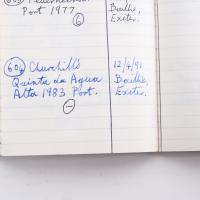 Port 1977
Boathe,
Exeter.
(6)
(604) Churchill's
Quinta da Agua
Alta 1983 Port.
12/4/91
Boathe,
Exeter.